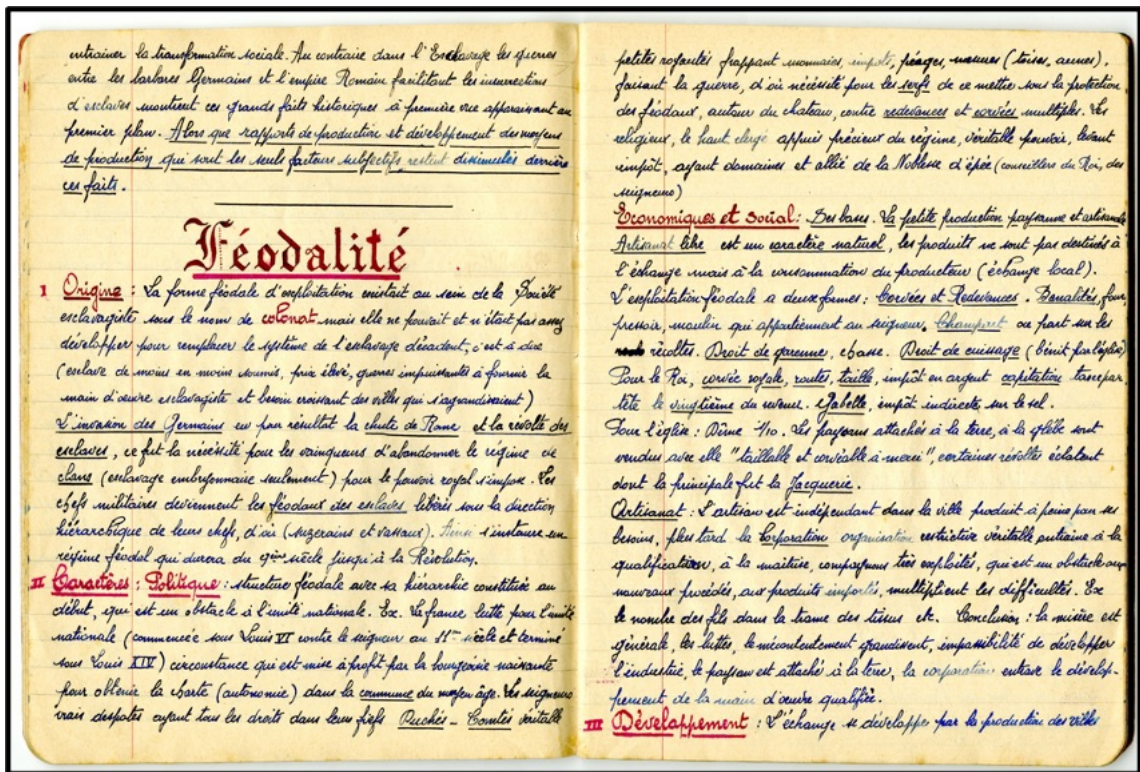 entrainer la transformation sociale. Au contraire dans l'Esclavage les guerres
entre les barbares Germains et l'empire Romain facilitant les insurrections
d'esclaves montrent ces grands faits historiques à première vue apparaissant au
premier plan. Alors que rapports de production et développement des moyens
de production qui sont les seuls facteurs subjectifs restent dissimulés derrière
ces faits.
Féodalité
I Origine : La forme féodale d'exploitation existait au sein de la Société
esclavagiste sous le nom de colonat mais elle ne pouvait et n'était pas assez
développer pour remplacer le système de l'esclavage décadent, c'est à dire
(esclave de moins en moins soumis, prix élevé, guerres impuissantes à fournir la
main d'œuvre esclavagiste et besoin croissant des villes qui s'agrandissaient)
L'invasion des Germains eu pour résultat la chute de Rome et la révolte des
esclaves, ce fut la nécessité pour les vainqueurs d'abandonner le régime de
clans (esclavage embryonnaire seulement) pour le pouvoir royal s'impose. Les
chefs militaires deviennent les féodaux des esclaves libérés sous la direction
hiérarchique de leurs chefs, d'où (suzerains et vassaux). Ainsi s'instaure un
régime féodal qui durera du siècle jusqu'à la Révolution.
II Caractères : Politique : structure féodale avec sa hiérarchie constituée au
début, qui est un obstacle à l'unité nationale. Ex. La france lutte pour l'unité
nationale (commencée sous Louis VI contre le seigneur au 11ème siècle et terminé
sous Louis XIV) circonstance qui est mise à profit par la bourgeoisie naissante
pour obtenir la charte (autonomie) dans la commune du moyen âge. Les seigneurs
vrais despotes ayant tous les droits dans leurs fiefs Duchés - Comtés véritable
petites royautés frappant monnaies, impots, péages, mesures (toises, aunes).
faisant la guerre, d'où nécessité pour les serfs de ce mettre sous la protection
des féodaux, autour du chateau, contre redevances et corvées multiples. Les
religieux, le haut clergé appuis précieux du régime, véritable pouvoir, levant
impôt, ayant domaines et allié de la Noblesse d'épée (conseillers du Roi, des
seigneurs)
Economiques et Social : Des bases. La petite production paysanne et artisanale
Artisanat libre est un caractère naturel, les produits ne sont pas destinés à
l'échange mais à la consommation du producteur (échange local).
L'exploitation féodale a deux formes : Corvées et Redevances. Banalités, four,
pressoir, moulin qui appartiennent au seigneur, Champart ou part sur les
récoltes. Droit de garenne, chasse. Droit de cuissage (bénit par l'église)
Pour le Roi, corvée royale, routes, taille, impôt en argent capitation taxe par
tête le vingtième du revenu. Gabelle, impôt indirecte sur le sel.
Pour l'église : Dîme 1/10. Les paysans attachés à la terre, à la glèbe sont
vendus avec elle "taillable et corvéable à merci", certaines révoltes éclatent
dont la principale fut la Jacquerie.
Artisanat : L'artisan est indépendant dans la ville produit à peine pour ses
besoins, plus tard la Corporation organisation restrictive véritable entrave à la
qualification, à la maîtrise, compagnons très exploités, qui est un obstacle aux
nouveaux procédés, aux produits importés, multiplient les difficultés. Ex
le nombre des fils dans la trame des tissus etc. Conclusion : la misère est
générale, les luttes, le mécontentement grandissent, impossibilité de développer
l'industrie, le paysan est attaché à la terre, la corporation entrave le dévelop-
pement de la main d'œuvre qualifiée.
III Développement : L'échange se développe par la production des villes